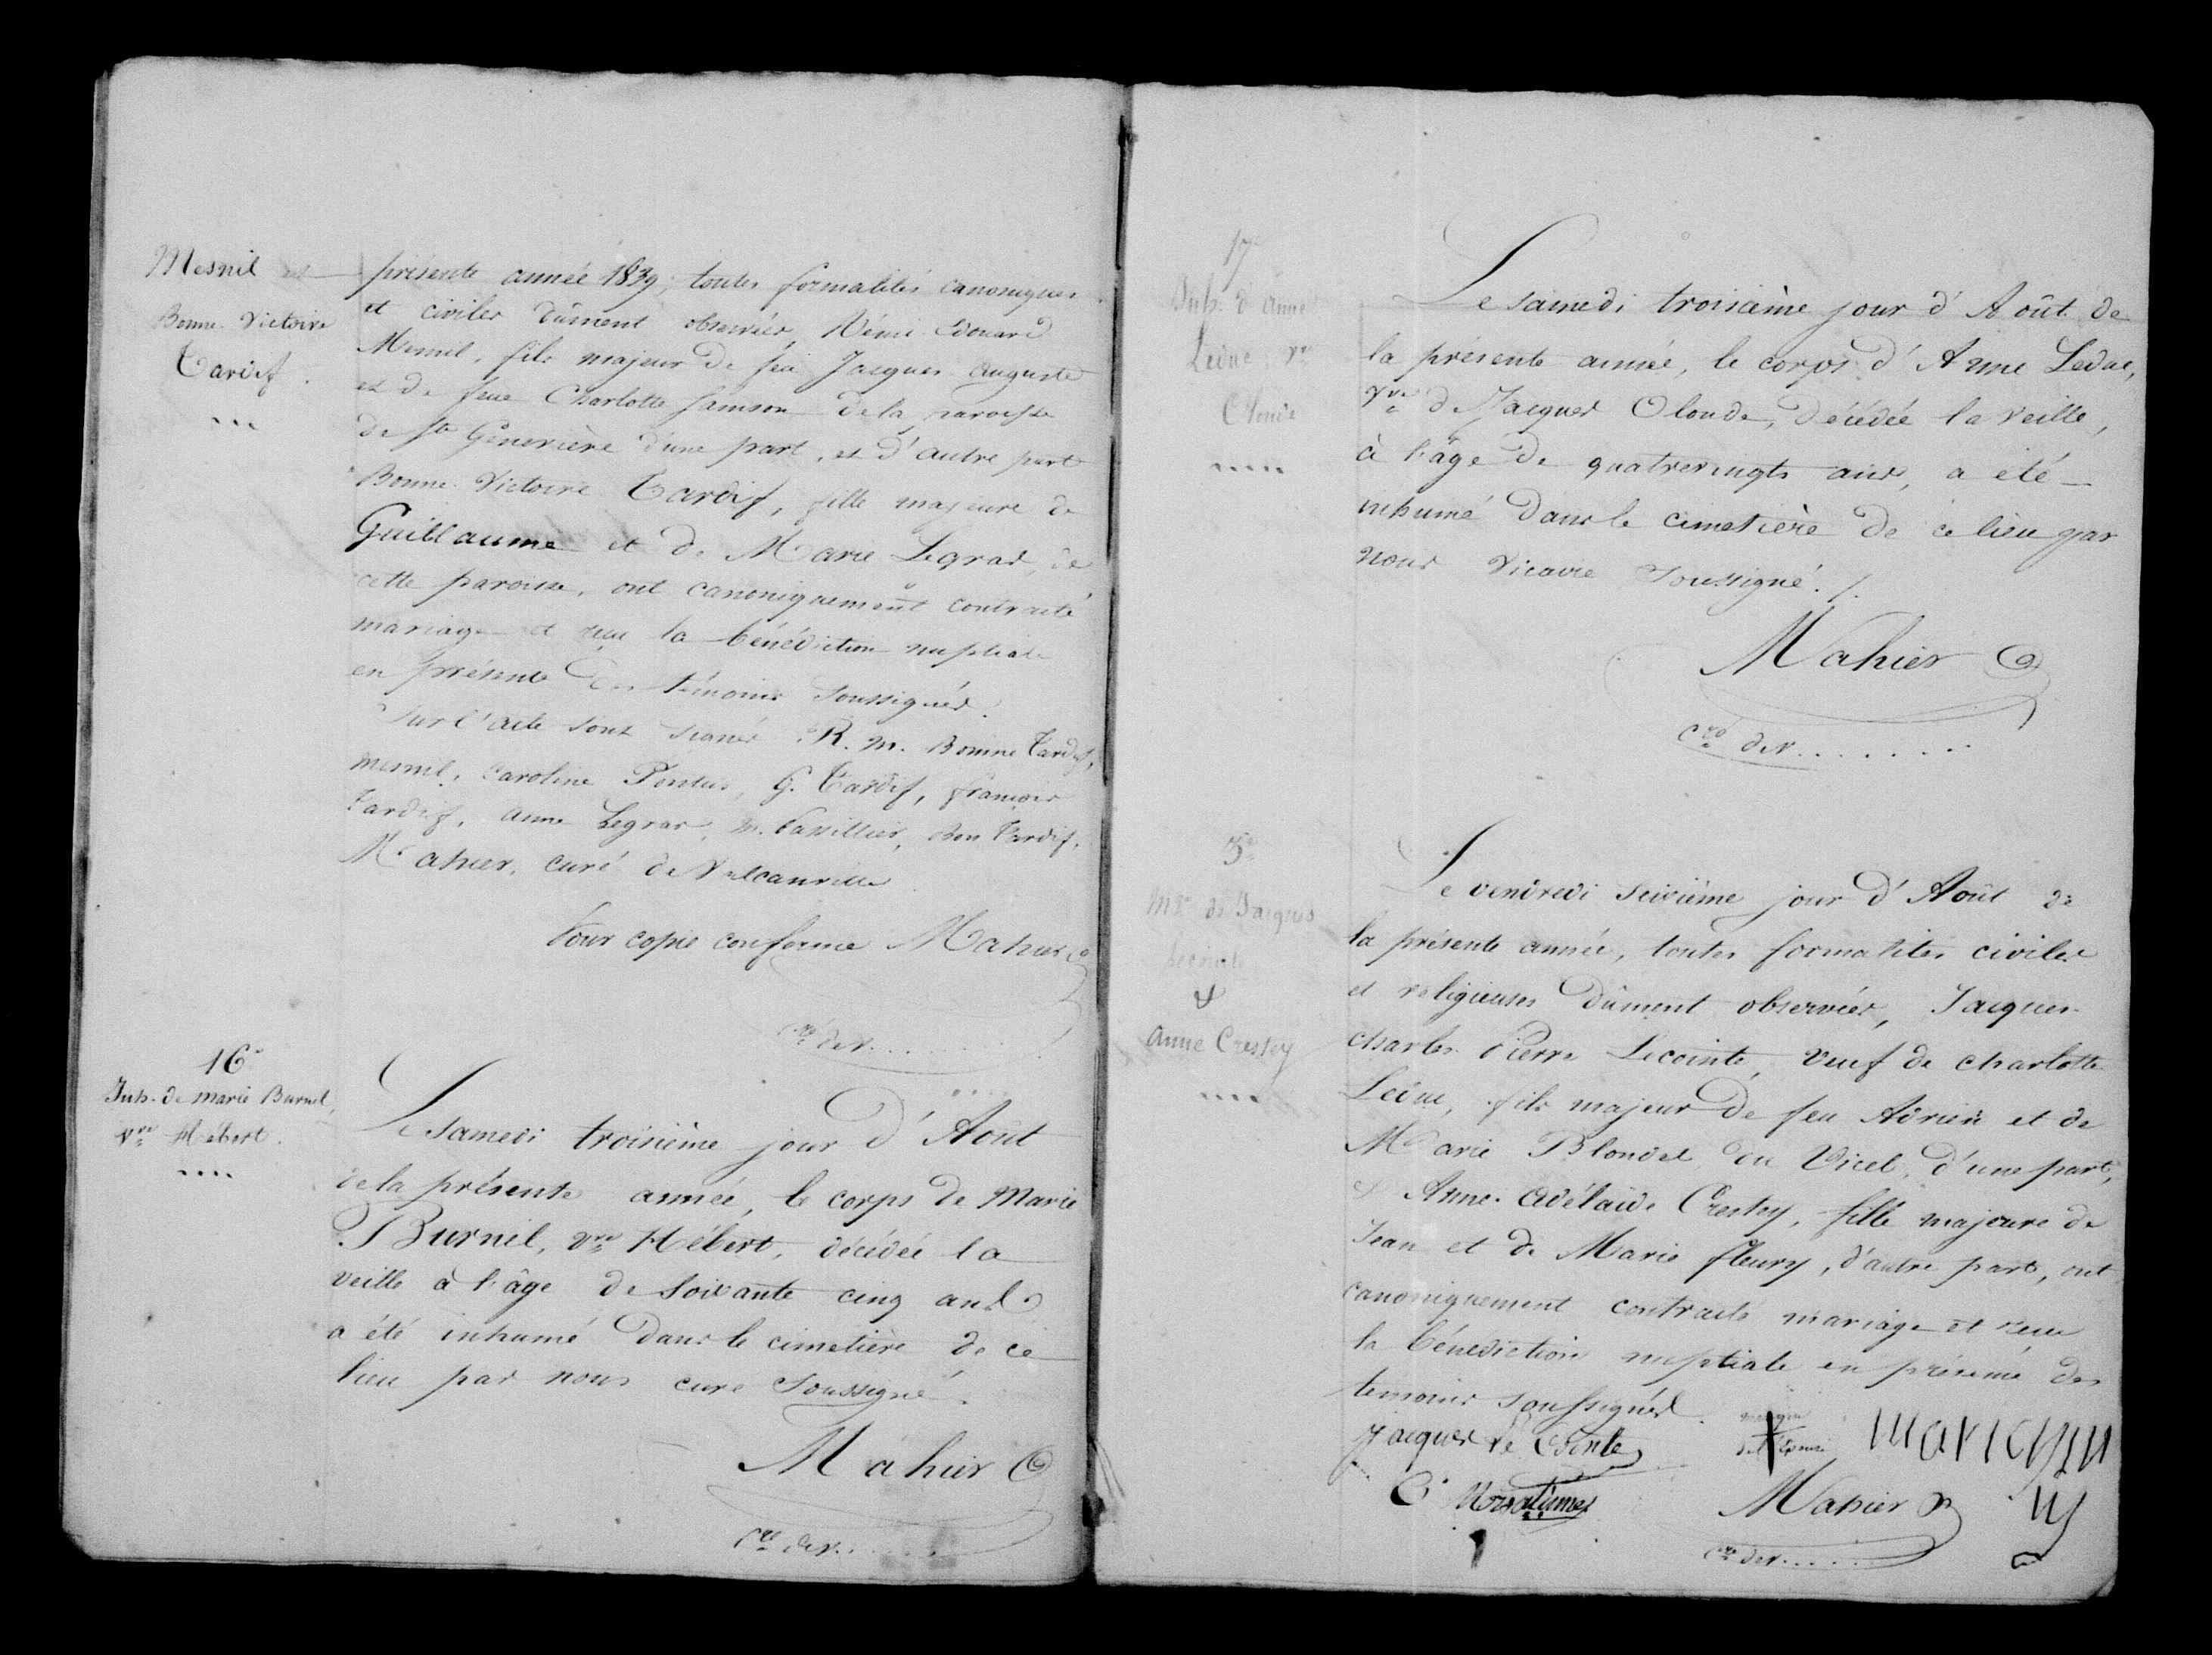 Mesnil et
Bonne Victoire
Tardif.
présente année 1839, toutes formalités canoniques
et civiles dûment observées, Rémi Edouard
Mesnil, fils majeur de feu Jacques Auguste
et de feue Charlotte Samson de la paroisse
de Ste Geneviève d'une part, et d'autre part
Bonne Victoire Tardif, fille majeure de
Guillaume et de Marie Legras, de
cette paroisse, ont canoniquement contracté
mariage et reçu la bénédiction nuptiale
en présence des témoins soussignés.
Sur l'acte sont signés: R. M. Bonne Tardif,
mesnil, Caroline, G. Tardif, françois
Tardif, anne Legras, M. Vassillier, Bon Tardif,
Mahier, curé de Valcanville
Pour copie conforme Mahier
Cré de V........
16e
Inh. de marie Burnel,
Vve Hébert.
Le samedi troisième jour d'Août
de la présente année, le corps de Marie
Burnel, Vve Hébert, décédée la
veille à l'âge de soixante cinq ans
a été inhumé dans le cimetière de ce
lieu par nous curé soussigné.
Mahier
Cré de V........
17e
Inh. d'anne
Leduc, Vve
Olonde
Le samedi troisième jour d'Août de
la présente année, le corps d'Anne Leduc,
Vve de Jacques Olonde, décédée la veille,
à l'âge de quatrevingts ans, a été
inhumé dans le cimetière de ce lieu par
nous Vicaire soussigné./.
Mahier
Cré de V........
5e
Mge de Jacques
Lecointe
&
Anne Crestey
Le vendredi seizième jour d'Août de
la présente année, toutes formalités civiles
et religieuses dûment observées, Jacques
Charles Pierre Lecointe, veuf de Charlotte
Leduc, fils majeur de feu Adrien et de
Marie Blondel, du Vicel, d'une part,
& Anne Adélaïde Crestey, fille majeure de
Jean et de Marie fleury, d'autre part, ont
canoniquement contracté mariage et reçu
la bénédiction nuptiale en présence des
témoins soussignés.
Jacques le Cointe
Mahier
Cré de V.....